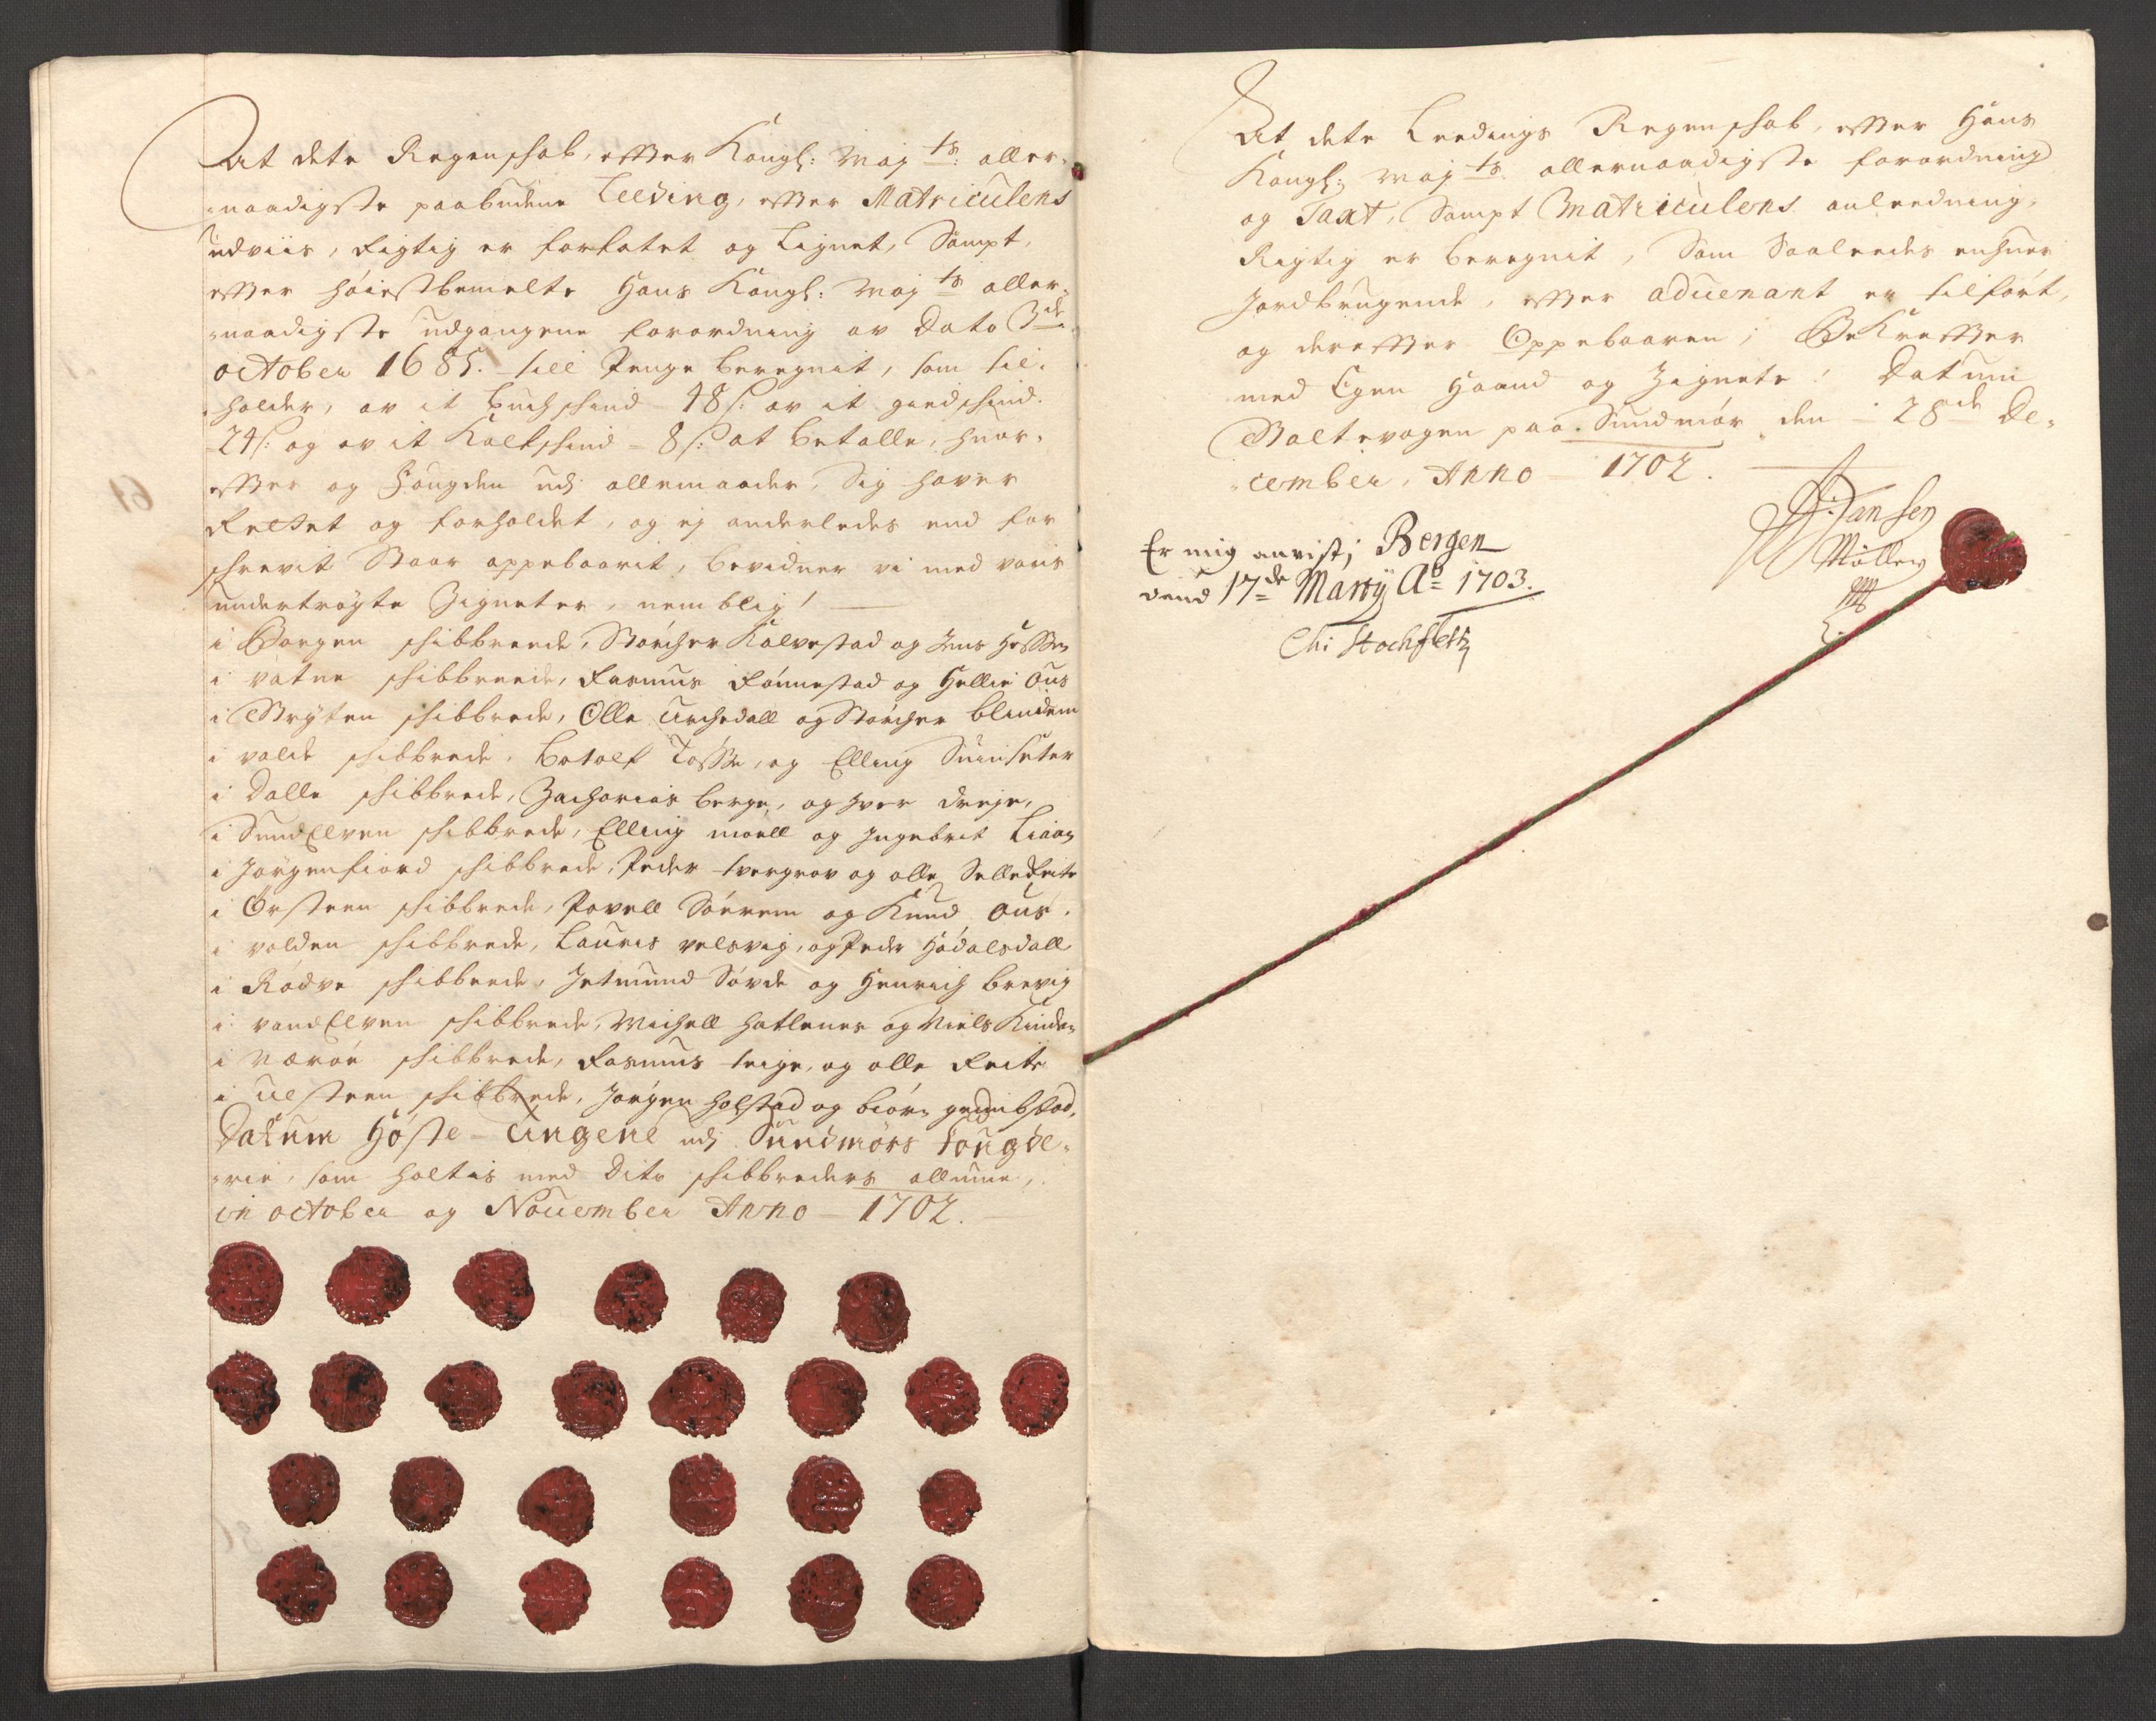 At dete Regenschab, effter Kongl: Maj ts: aller-
naadigste paabudene Leeding, effter Matriculens
udviis, Rigtig er forfatet og Lignet, Sampt,
effter höiestbemelte Hans Kongl: Maj ts aller-
naadigste udgangene forordning av Dato 3de
october 1685. till Penge beregnit, som til-
holder, av it buchschind 48 s: av it giedschind.
24 s: og av it Kalfschind - 8 s: at betalle, huor-
effter og fougden udj allemaader, Sig haver
Rettet og forholdet, og ej anderledes end for
schrevit Staar oppebaarit, bevidner vi med voris
undertrögte Zigneter, nemblig!
i Borgen schibbrede, Störcher Kalvestad og Jens Hessen
i vatne schibbreede, Rasmus Rönnestad og Hellie Ous
i Strÿten schibbrede, Olle Urchedall og Störcher blindem
i valde schibbrede, Botolf Tosse, og Elling Suinseter
i Dalle schibbrede, Zacharias berge, og Iver Dreje,
i SundElven schibbrede, Elling moell og Ingebrit Liaan
i Jörgenfiord schibbrede, Peder tvergrov og olle SelleReite
i Örsteen schibbrede, Povell Söerem og Knud Ous.
i volden schibbrede, Lauris velsvig, og Peder Hödalsdall
i Rödve schibbrede, Jetmund Sövde og Henrich brevig
i vandElven schibbrede, Michell hatlenes og Niels Kinden
i Nærøe schibbrede, Rasmus teige, og olle Reite
i ulsteen schibbrede, Jörgen Holstad og biörn
Datum Höste-Tingene udj Sundmörs fougde-
rie, som holtis med Dito schibbreders allmue,
in october og Nouember Anno - 1702.
At dete Leedings Regenschab, effter Hans
Kongl: Maj ts allernaadigste forordning
og Taxt, Sampt Matriculens anleedning,
Rigtig er beregnit, Som Saaleedes enhuer
Jordbrugende, effter aduenant er tilfört,
og dereffter Oppebaaren, BeKreffter
med Egen Haand og Zignete! Datum
Voltevogen paa Sundmör den - 28de De-
cember, Anno - 1702.
Jansen
Möller
Er mig anvist, Bergen
dend 17de Martÿ Ao 1703.
Chr Stockfleth